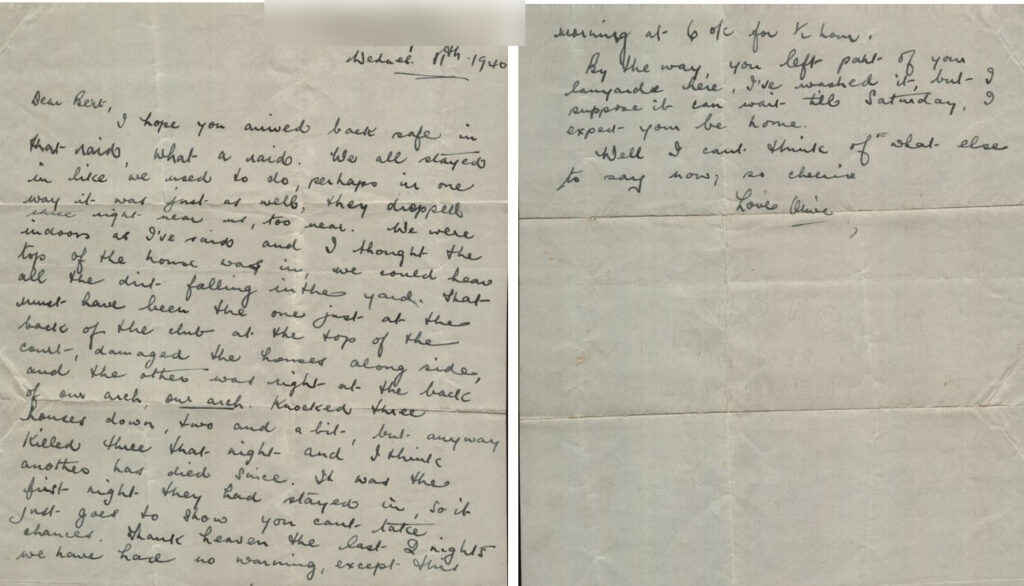 Wednes. 11th 1940
Dear Bert,
I hope you arrived back safe in
that raid, what a raid. We all stayed
in like we used to do, perhaps in one
way it was just as well, they dropped
right near us, too near. We were
indoors as I've said and I thought the
top of the house was in, we could hear
all the dirt falling in the yard. That
must have been the one just at the
back of the club at the top of the
court, damaged the houses along side,
and the other was right at the back
of our arch, our arch. Knocked three
houses down, two and a bit, but anyway
killed three that night and I think
another has died since. It was the
first night they had stayed in, so it
just goes to show you cant take
chances. Thank heaven the last 2 nights
we have had no warning, except this
morning at 6 o/c for ½ hour.
By the way, you left part of your
lanyards here, I've washed it, but I
suppose it can wait till Saturday, I
expect your be home.
Well I cant think of what else
to say now, so cheerie
Love Olive,